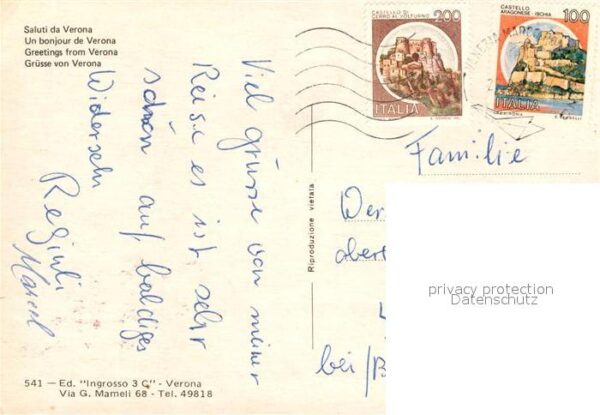 Saluti da Verona
Un bonjour de Verona
Greetings from Verona
Grüsse von Verona
Viel grüsse von meiner
Reise es ist sehr
schön auf baldiges
Widersehn
Regiuli
Marcel
541 — Ed. "Ingrosso 3 C" - Verona
Via G. Mameli 68 - Tel. 49818
Riproduzione vietata
CASTELLO DI
CERRO AL VOLTURNO
200
ITALIA
CASTELLO
ARAGONESE - ISCHIA
100
ITALIA
Familie
Wer
obert
bei/B
privacy protection
Datenschutz